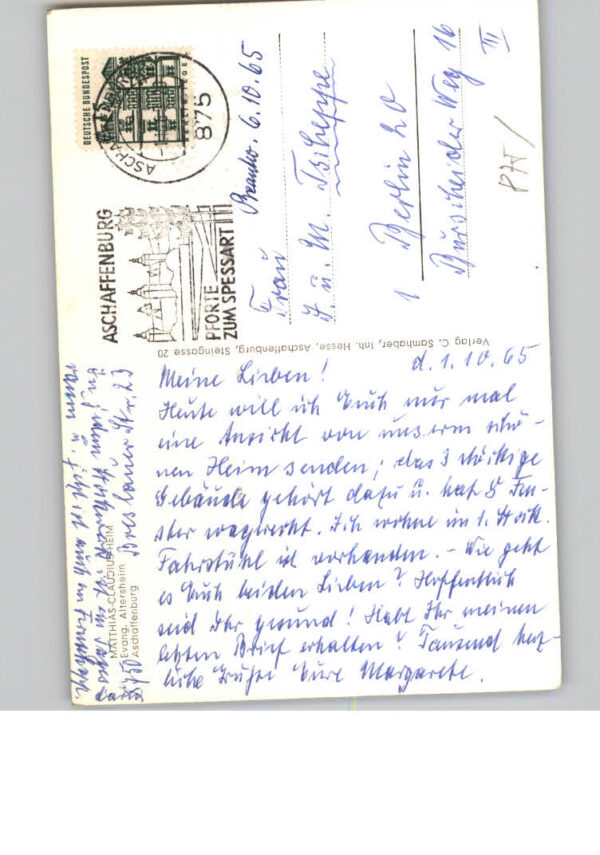 Meine Lieben! d. 1.10.65
Heute will ich Euch nur mal
eine Ansicht von unserm schö-
nen Heim senden; das 3 stöckige
Gebäude gehört dazu u. hat 5 Fen-
ster waagerecht. Ich wohne im 1. Stock.
Fahrstuhl ist vorhanden. – Wie geht
es Euch beiden Lieben? Hoffentlich
seid Ihr gesund! Habt Ihr meinen
letzten Brief erhalten? Tausend herz-
liche Grüße Eure Margarete.
MATTHIAS-CLAUDIUS-HEIM
Evang. Altersheim
Aschaffenburg
Breslauer Str. 23
Verlag C. Samhaber, Inh. Hesse, Aschaffenburg, Steingasse 20
DEUTSCHE BUNDESPOST
875
ASCHAFFENBURG
PFORTE
ZUM SPESSART
6.10.65
Frau
J. u. M. Tscheppe
1 Berlin 20
Burscheider Weg 16
III